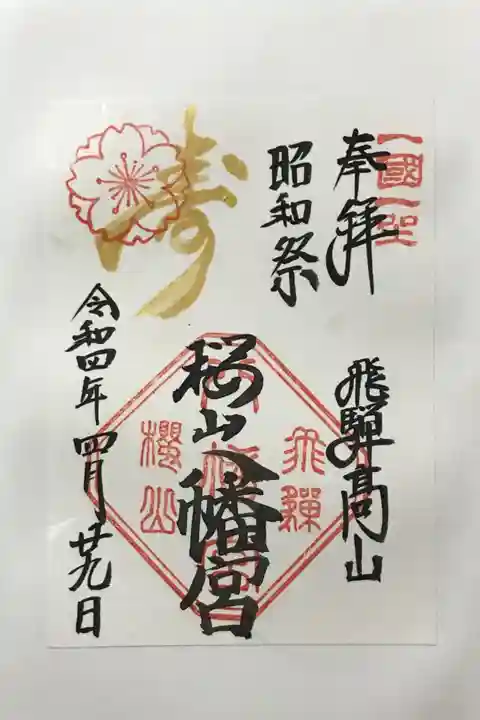 一國一社
奉拝
昭和祭
壽
飛騨高山
桜山八幡宮
飛騨
櫻山
令和四年四月廿九日